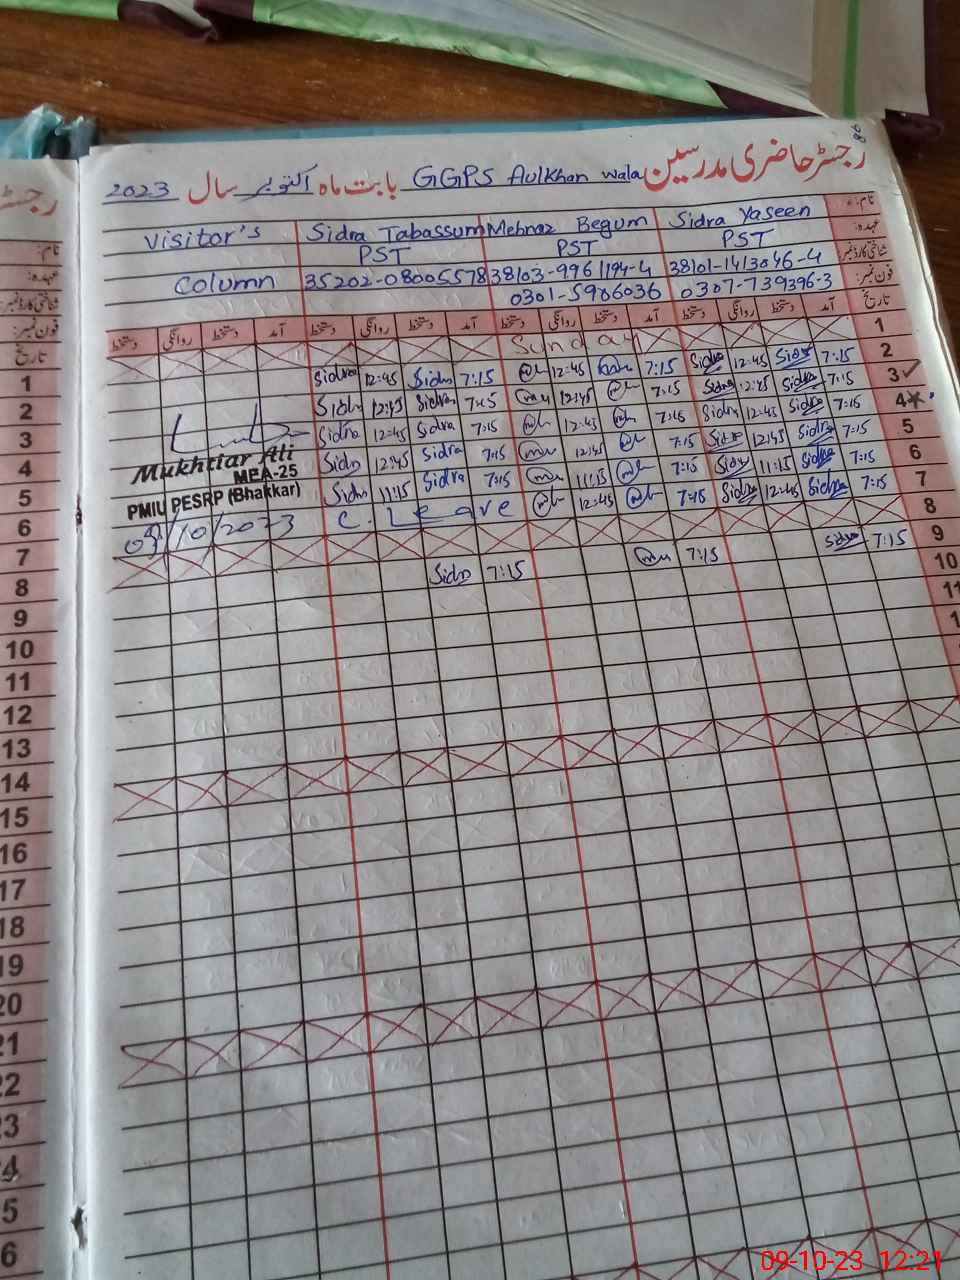 رجسٹر حاضری مدرسین GGPS Aulkhan wala بابت ماہ اکتوبر سال 2023
نام: Sidra Yaseen Mehnaz Begum Sidra Tabassum Visitor's
عہدہ: PST PST PST
شناختی کارڈ نمبر: 38101-1413046-4 38103-9961194-4 35202-08005578 Column
فون نمبر: 0307-739396-3 0301-5986036
تاریخ آمد دستخط روانگی دستخط آمد دستخط روانگی دستخط آمد دستخط روانگی دستخط آمد دستخط روانگی دستخط
1 Sunday
2 7:15 Sidra 12:45 Sidra 7:15 12:45 7:15 Sidra 12:45 Sidra
3 7:15 Sidra 12:45 Sidra 7:15 12:45 7:15 Sidra 12:45 Sidra
4 7:15 Sidra 12:45 Sidra 7:15 12:45 7:15 Sidra 12:45 Sidra
5 7:15 Sidra 12:45 Sidra 7:15 12:45 7:15 Sidra 12:45 Sidra
6 7:15 Sidra 11:15 Sidra 7:15 11:15 7:15 Sidra 11:15 Sidra
7 7:15 Sidra 12:45 Sidra 7:15 12:45 C. Leave
8
9 7:15 Sidra 7:15 7:15 Sidra
10
11
Mukhtiar Ali
MEA-25
PMIU PESRP (Bhakkar)
03/10/2023
رجسٹر
نام:
عہدہ:
شناختی کارڈ نمبر:
فون نمبر:
تاریخ
1
2
3
4
5
6
7
8
9
10
11
12
13
14
15
16
17
18
19
20
21
22
23
24
5
6
09-10-23 12:21